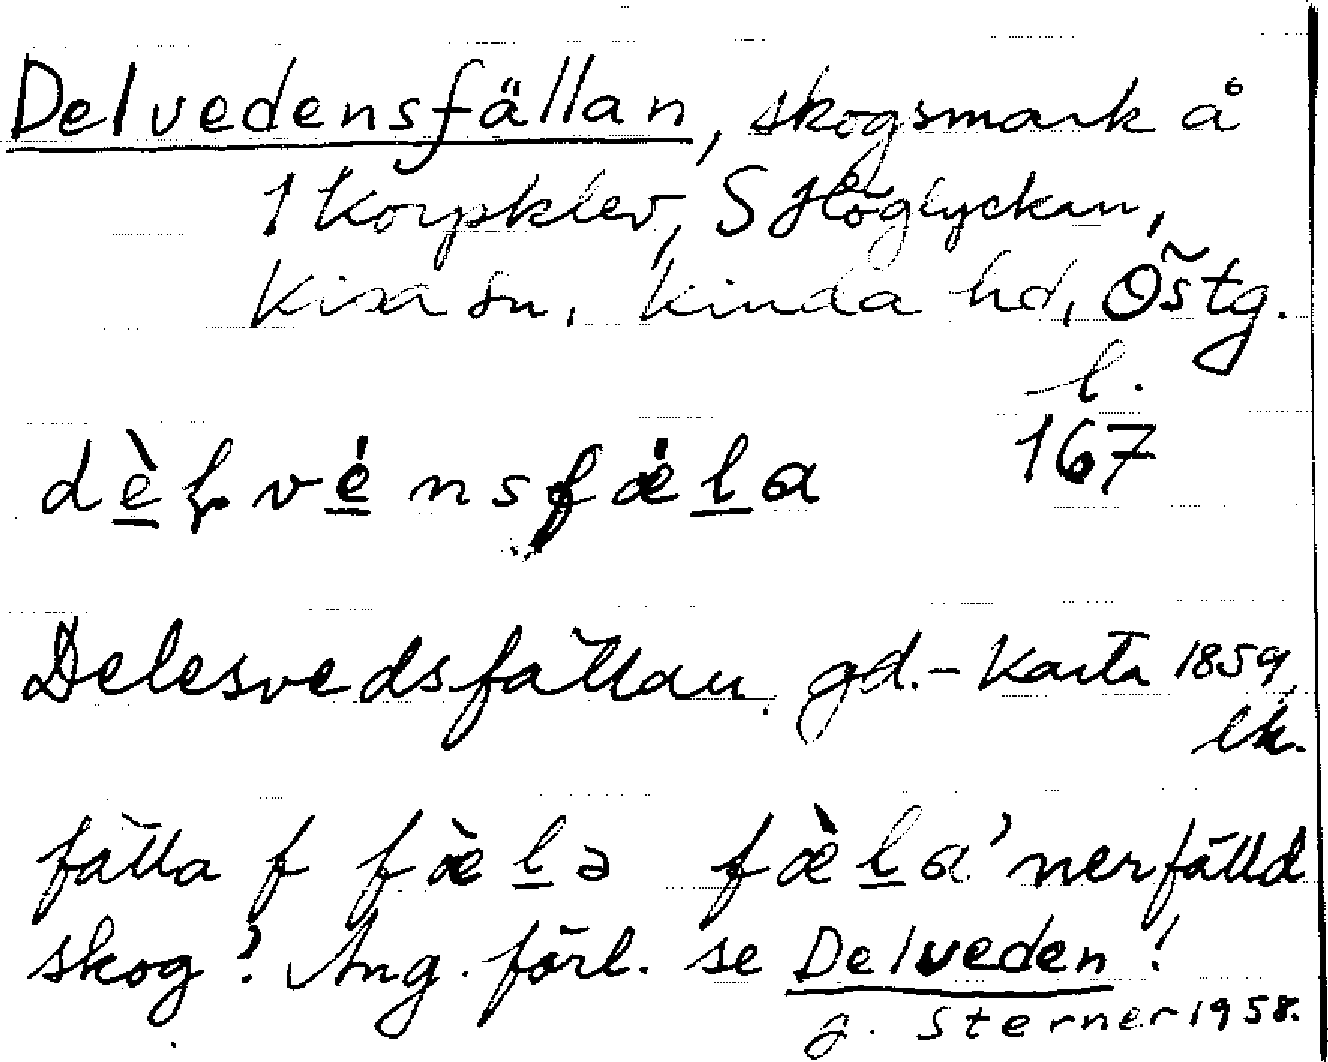 Delvedensfällan, skogsmark å
1 Korpklev, S Höglyckan,
Kisa sn, Kinda hd, Östg.
l.
167
dèḷvénsfæ̇la
Delesvedsfällan. gd.-karta 1859,
lk.
fälla f fæ̀lə fæ̀la' nerfälld
skog? Ang. förl. se Delveden!
G. Sterner 1958.